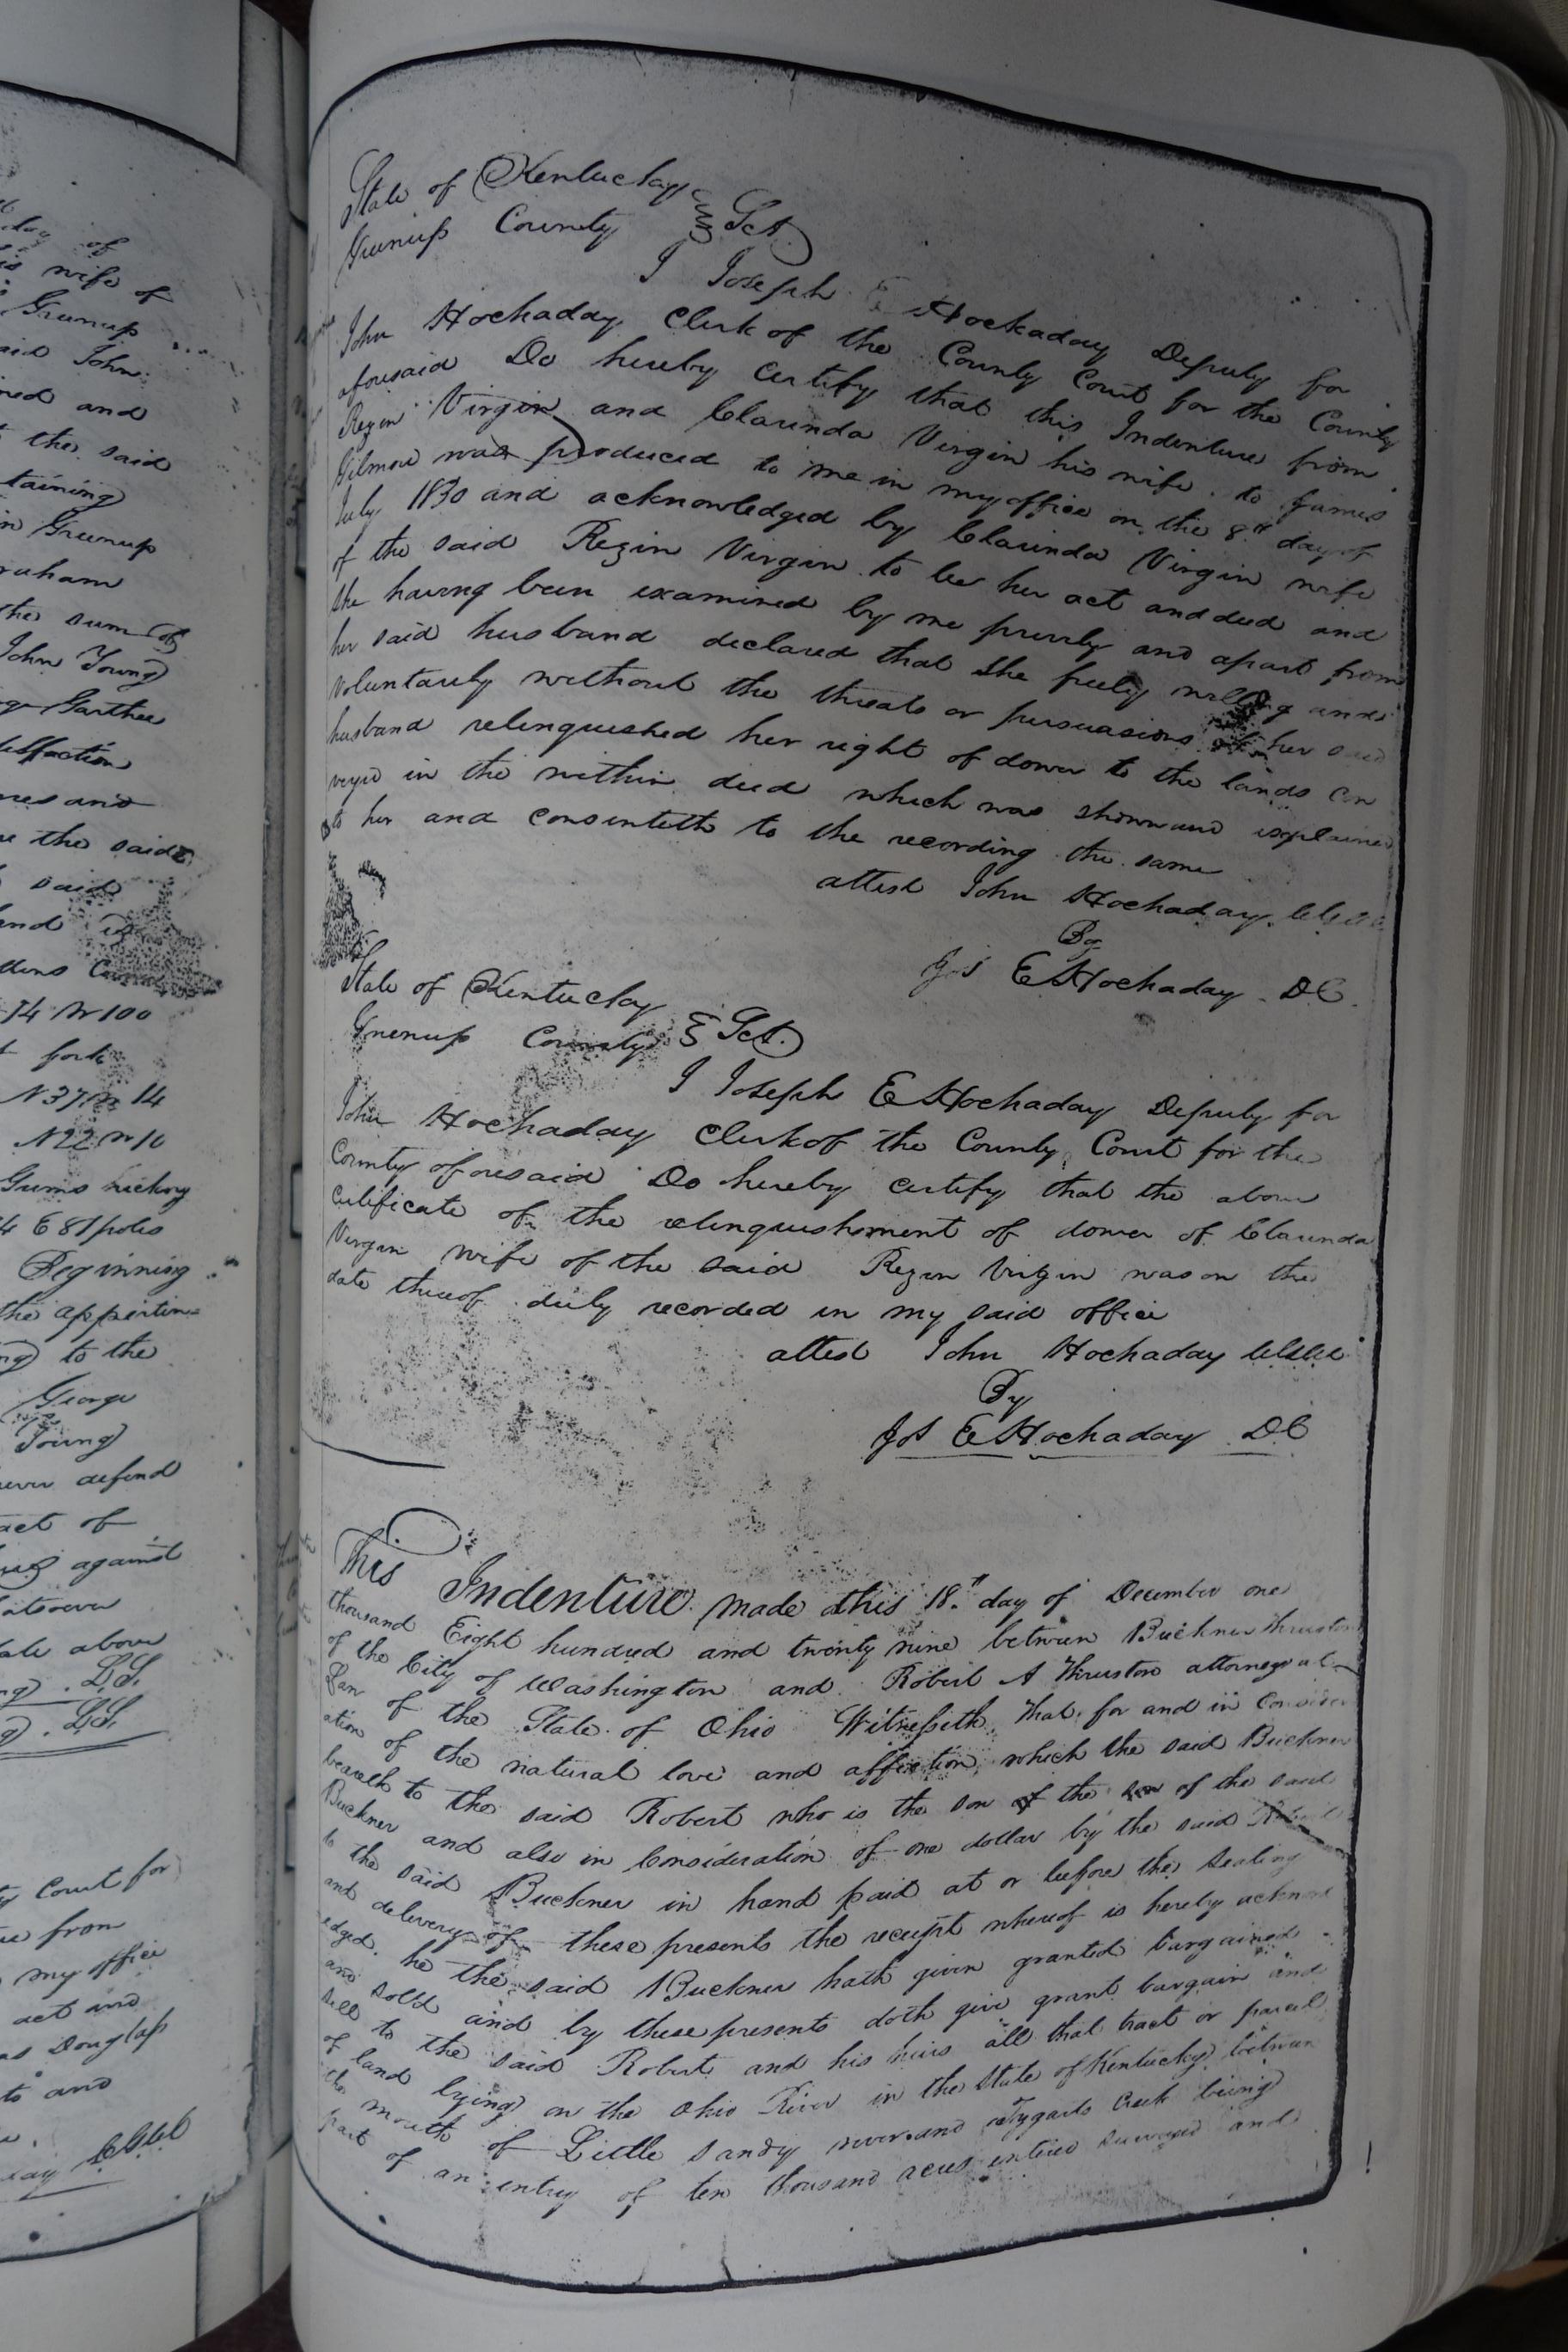 day of
is wife of
Greenup
aid John
ned and
the said
taining
in Greenup
raham
the sum of
John Young
ge Garthee
tisfaction
mes and
the said
said
and
14 W 100
fork
N 37 W 14
N 22 W 10
Gums hickory
4 E 81 poles
Beginning
the appertin
ng to the
George
Young
ever defend
act of
against
atsoever
ate above
ng . L.S.
g . L.S.
ty Court for
from
my office
act and
as Douglass
to and
ay C G C C
State of Kentucky
Greenup County } Sct.
I Joseph E Hockaday Deputy for
John Hockaday Clerk of the County Court for the County
aforesaid Do hereby certify that this Indenture from
Rezin Virgin and Clarinda Virgin his wife to James
Gilmore was produced to me in my office on the 8th day of
July 1830 and acknowledged by Clarinda Virgin wife
of the said Rezin Virgin to be her act and deed and
she having been examined by me privily and apart from
her said husband declared that she freely willing and
voluntarily without the threats or persuasions of her said
husband relinquished her right of dower to the lands con
veyed in the within deed which was shown and explained
to her and consenteth to the recording the same
attest John Hockaday
By
Jos E Hockaday DC
State of Kentucky
Greenup County } Sct.
I Joseph E Hockaday Deputy for
John Hockaday Clerk of the County Court for the
County aforesaid Do hereby certify that the above
certificate of the relinquishment of dower of Clarinda
Virgin wife of the said Rezin Virgin was on the
date thereof duly recorded in my said office
attest John Hockaday
By
Jos E Hockaday DC
This Indenture made this 18th day of December one
thousand Eight hundred and twenty nine between Buckner Thruston
of the City of Washington and Robert A Thruston attorney at
Law of the State of Ohio Witnesseth That for and in Consider
ation of the natural love and affection which the said Buckner
beareth to the said Robert who is the son of the son of the said
Buckner and also in Consideration of one dollar by the said Robert
to the said Buckner in hand paid at or before the sealing
and delivery of these presents the receipt whereof is hereby acknowl
edged. he the said Buckner hath given granted bargained
and sold and by these presents doth give grant bargain and
sell to the said Robert and his heirs all that tract or parcel
of land lying on the Ohio River in the State of Kentucky between
the mouth of Little Sandy river and Tygarts Creek being
part of an entry of ten thousand acres entered surveyed and